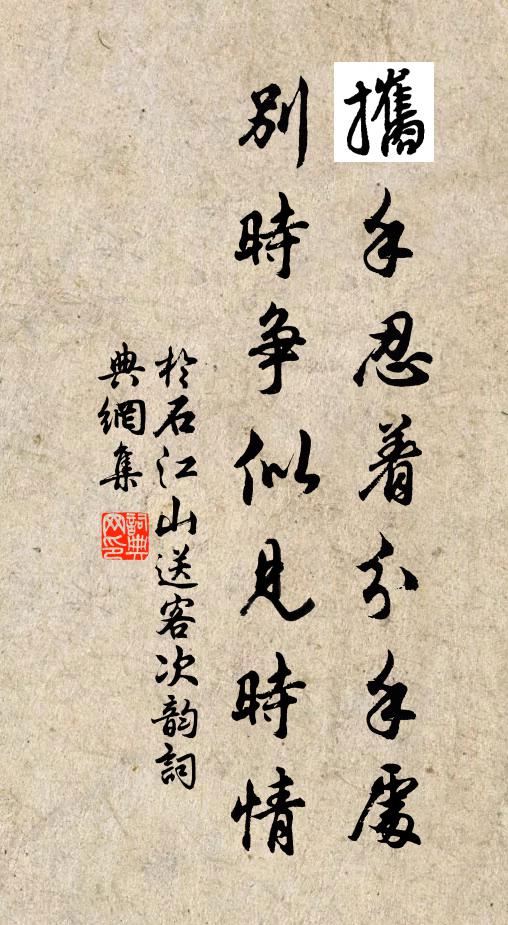 攜手忍着分手處
別時爭似見時情
於石江山送客次韵詞
典網集
詞典网印